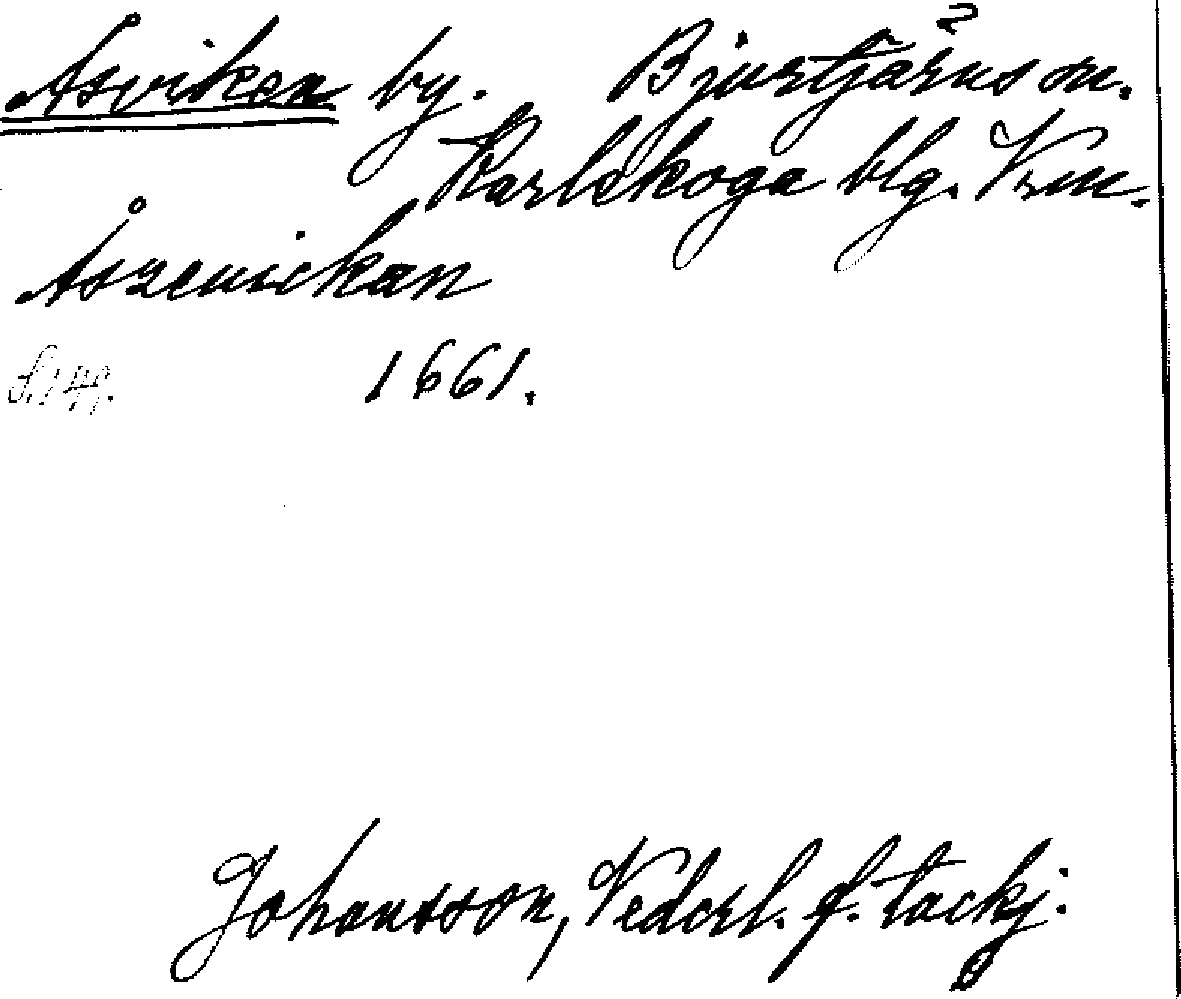 Åsviken by. Bjurtjärns sn.
Karlskoga blg. Vrm.
Åszeuickan
S. 149. 1661.
Johansson, Vederl. f. tackj.